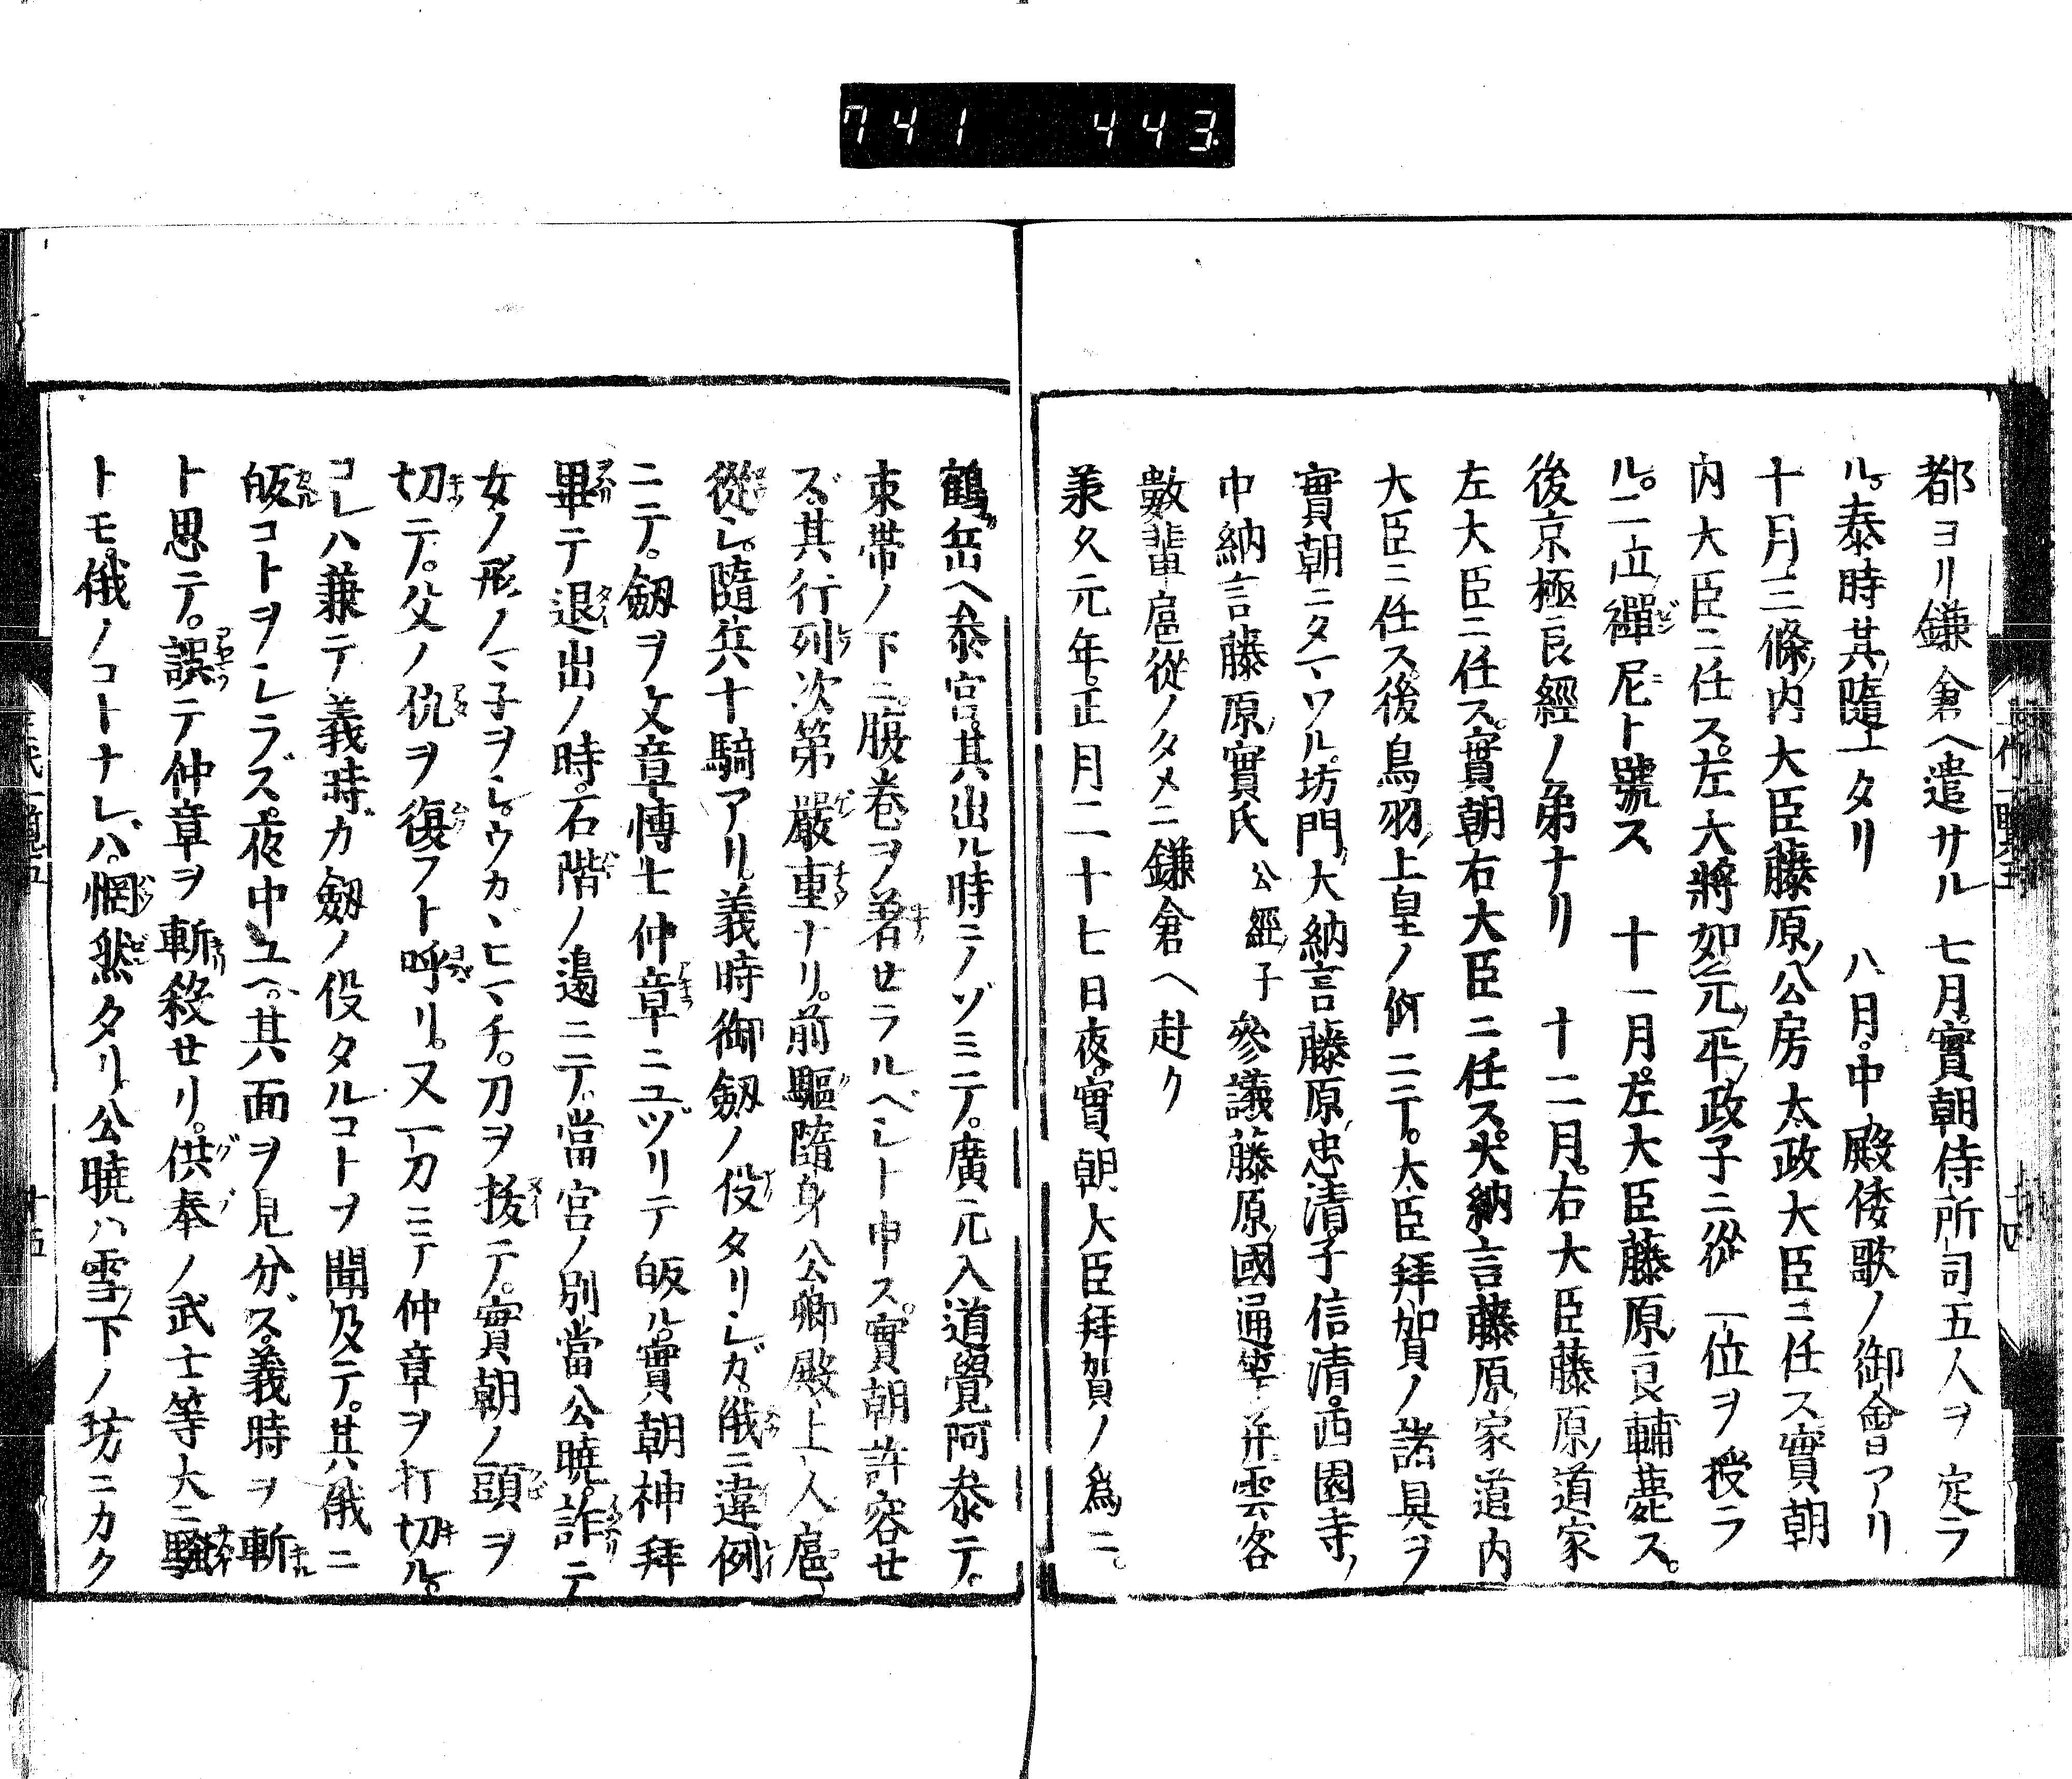 741 443
都ヨリ鎌倉ヘ遣サル 七月。實朝侍所司五人ヲ定ラ
ル。泰時其隨一タリ 八月。中殿倭歌ノ御會アリ
十月三條ノ内大臣藤原ノ公房太政大臣ニ任ス實朝
内大臣ニ任ス。左大將如元。平ノ政子ニ從一位ヲ授ラ
ル。二位禪尼ト號ス 十一月。左大臣藤原ノ良輔薨ス。
後京極良經ノ弟ナリ 十二月。右大臣藤原ノ道家
左大臣ニ任ス。實朝右大臣ニ任ス。大納言藤原ノ家道内
大臣ニ任ス。後鳥羽ノ上皇ノ何ニテ。大臣拜賀ノ諸具ヲ
實朝ニタマワル。坊門ノ大納言藤原ノ忠清子信清。西園寺ノ
中納言藤原ノ實氏公經ノ子參議藤原ノ國通等并雲客
數輩扈從ノタメニ鎌倉ヘ赴ク
承久元年。正月二十七日夜。實朝大臣拜賀ノ爲ニ。
鶴岳ヘ參宮。其出ル時ニノゾミテ。廣元入道覺阿參テ。
束帶ノ下ニ。腹卷ヲ著セラルベシト申ス。實朝許容セ
ズ。其行列次第嚴重ナリ。前驅隨身公卿殿上人扈
從シ。隨兵十騎アリ。義時御劔ノ役タリシガ。俄ニ違例
ニテ。劔ヲ文章博士仲章ニユヅリテ皈ル。實朝神拜
畢テ退出ノ時。石階ノ邊ニテ。當宮ノ別當公曉。詐テ
女ノ形ノマ子ヲシ。ウカヾヒマチ。刀ヲ拔テ。實朝ノ頭ヲ
切テ。父ノ仇ヲ復フト呼リ。又一刀ニテ仲章ヲ打切ル。
コレハ兼テ義時ガ劔ノ役タルコトヲ聞及テ。其俄ニ
皈コトヲシラズ。夜中ユヘ。其面ヲ見分ズ。義時ヲ斬
ト思テ。誤テ仲章ヲ斬殺セリ。供奉ノ武士等大ニ騷
トモ。俄ノコトナレバ。惘然タリ。公曉ハ雪ノ下ノ坊ニカク
十四
十五